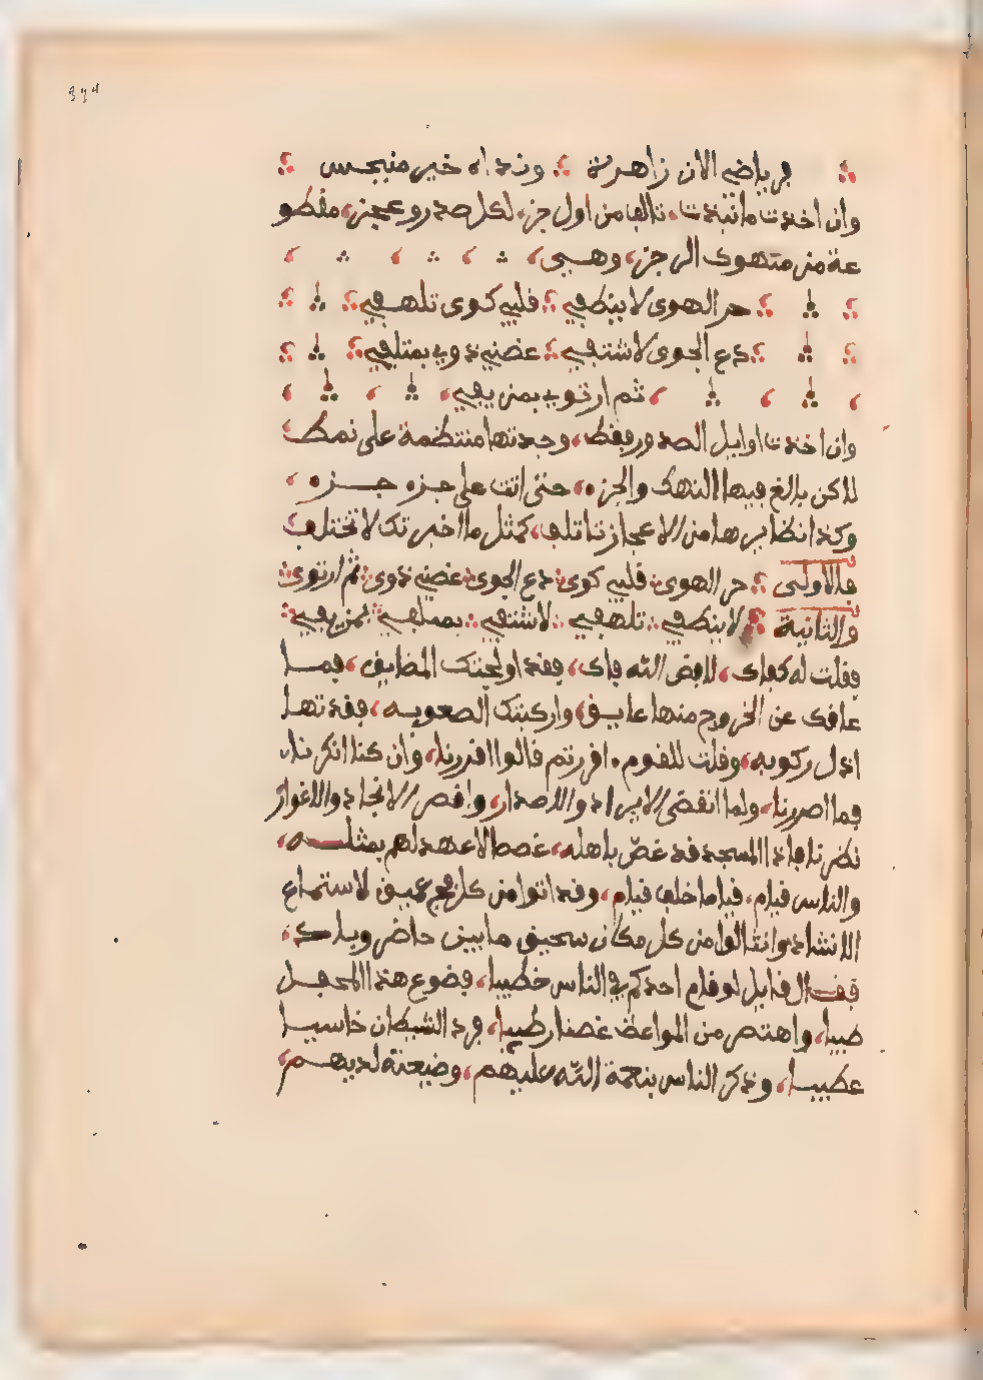 في رياض الان زاهرة ؞ ونداه خير منبجس
وان اخذت ما انتبذت، تالف من اول جزء، لكل صدر وعجز، مقطو
عة من منهوك الرجز، وهـي،
حر الهوى لا ينطفي ؞ قلبي كوى تلهفي
دع الجوى لا شتفي ؞ غصني ذوي بمتلفي
ثم ارتوي بمن يفي،
وان اخذت اوايل الصدور فقط، وجدتها منتظمة على نمط
لاكن بالغ فيها النهك والجزء، حتى اتت على جزء جـزء،
وكذا نظايرها من الاعجاز تاتلف، كمثل ما اخبرتك لا تختلف
فالاولى ؞ حر الهوى ؞ قلبي كوى ؞ دع الجوى ؞ غصني ذوى ؞ ثم ارتوى ؞
والثانية ؞ لا ينطفي ؞ تلهفي ؞ لا شتفي ؞ بمتلفي ؞ بمن يفي ؞
فقلت له كفاك، لا فض الله فاك، فقد اولجتك المضايق، فمـا
عاقك عن الخروج منها عايق، واركبتك الصعوبه، فقدتهـا
اذل ركوبه، وقلت للقوم، اقررتم قالوا اقررنا، وان كنا انكرنا،
فما اصررنا، ولما انقضى الايراد والاصدار، واقصر الانجاد والاغوار
نظرنا فاذا المسجد قد غصّ باهله، غصصا لا عهد لهم بمثلـه،
والناس قيام، قياما خلف قيام، وقد اتوا من كل فج عميق لاستماع
الانشاد وانثالوا من كل مكان سحيق ما بين حاضر وبـاد،
فقـال قايل لو قام احدكم في الناس خطيبا، فضوع هذا المحفـل
طيبا، واهتصر من المواعظ غصنا رطيبا، فرد الشيطان خاسيـا
عطيبـا، وذكر الناس بنعمة الله عليهم، وضيعته لديهـم،